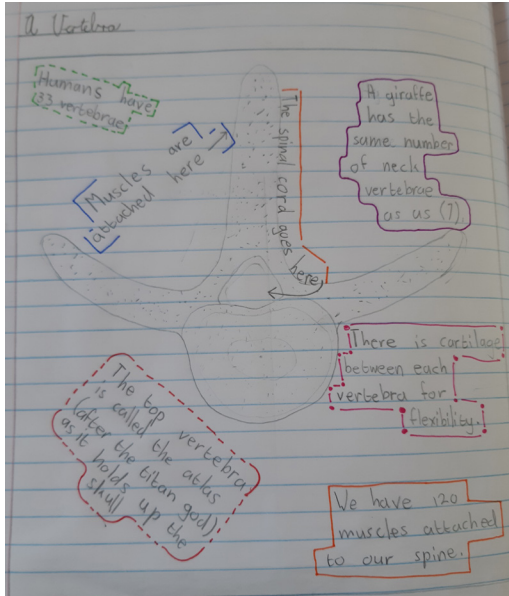 A Vertebra
Humans have
33 vertebrae
Muscles are
attached here
The spinal cord goes
here
A giraffe
has the
same number
of neck
vertebrae
as us (7).
There is cartilage
between each
vertebra for
flexibility.
The top vertebra
is called the atlas
(after the titan god)
as it holds up the
skull
We have 120
muscles attached
to our spine.